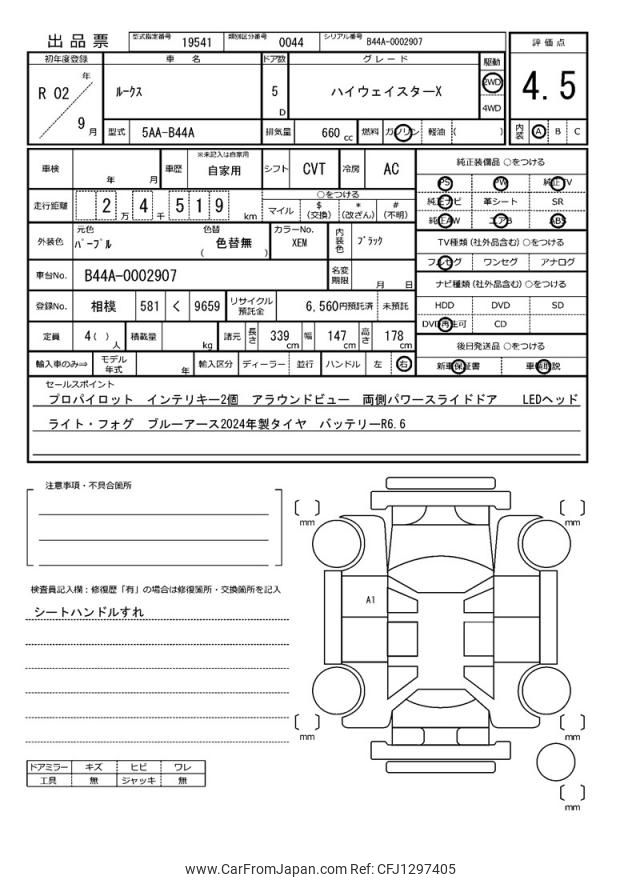 出品票 型式指定番号 19541 類別区分番号 0044 シリアル番号 B44A-0002907
評価点
4.5
内装 A B C
初年度登録 車名 ドア数 グレード 駆動
R 02 年 9 月 ルークス 5 D ハイウェイスターX 2WD 4WD
型式 5AA-B44A 排気量 660 cc 燃料 ガソリン 軽油 ( )
車検 年 月 車歴 ※未記入は自家用 自家用 シフト CVT 冷房 AC
走行距離 2 万 4 千 5 1 9 km
○をつける
マイル $ (交換) * (改ざん) # (不明)
外装色 元色 パープル 色替 ( 色替無 ) カラーNo. XEM 内装色 ブラック
車台No. B44A-0002907 名変期限 月 日
登録No. 相模 581 く 9659 リサイクル預託金 6,560円預託済 未預託
定員 4( ) 人 積載量 kg 諸元 長さ 339 cm 幅 147 cm 高さ 178 cm
輸入車のみ⇒ モデル年式 年 輸入区分 ディーラー 並行 ハンドル 左 右
純正装備品 ○をつける
PS PW 純正TV
純正ナビ 革シート SR
純正AW エアB ABS
TV種類(社外品含む)○をつける
フルセグ ワンセグ アナログ
ナビ種類(社外品含む)○をつける
HDD DVD SD
DVD再生可 CD
後日発送品 ○をつける
新車保証書 車輌取説
セールスポイント
プロパイロット インテリキー2個 アラウンドビュー 両側パワースライドドア LEDヘッド
ライト・フォグ ブルーアース2024年製タイヤ バッテリーR6.6
注意事項・不具合箇所
検査員記入欄:修復歴「有」の場合は修復箇所・交換箇所を記入
シートハンドルすれ
ドアミラー キズ ヒビ ワレ
工具 無 ジャッキ 無
[ ] mm [ ] mm
A1
[ ] mm [ ] mm
[ ] mm
www.CarFromJapan.com Ref: CFJ1297405